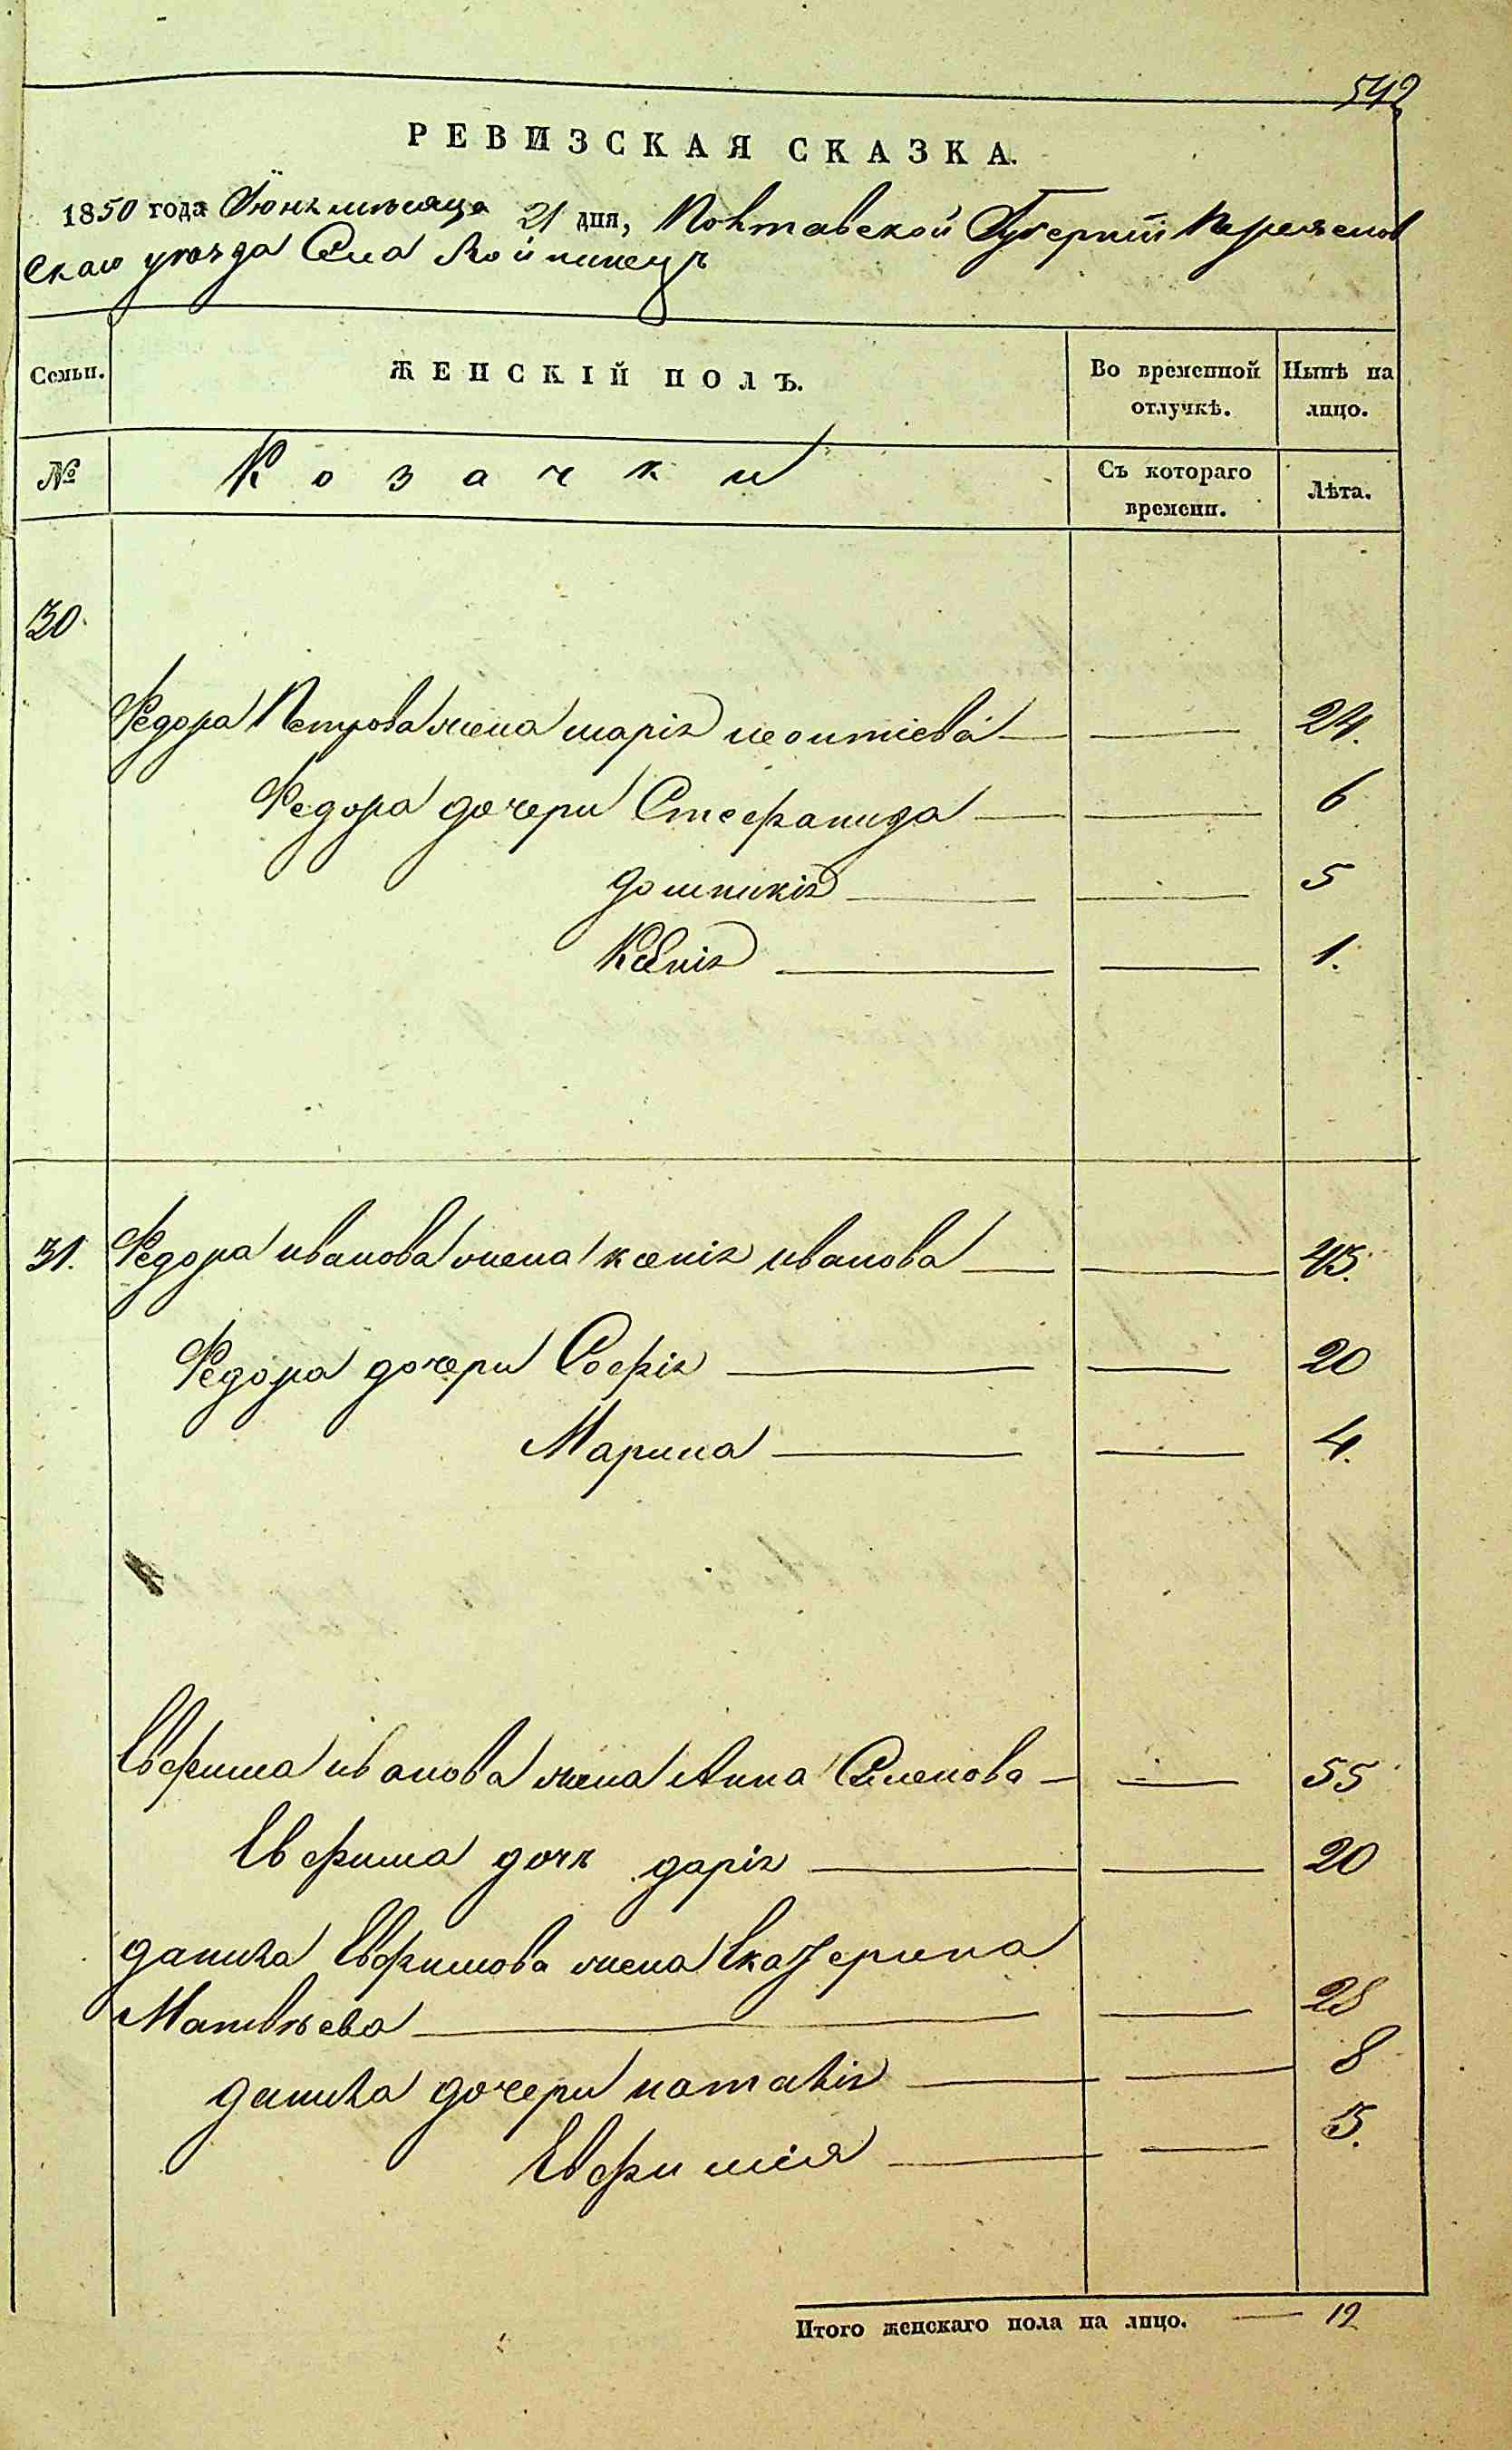 542
РЕВИЗСКАЯ СКАЗКА.
1850 года Іюня мѣсяца 21 дня, Полтавской Губерніи Переяслов
скаго уѣзда Села Войтовецъ
Семьи. ЖЕНСКІЙ ПОЛЪ. Во временной отлучкѣ. Нынѣ на лицо.
№ Козачки Съ котораго времени. Лѣта.
30.
Федора Петрова жена марія леонтіева 24.
Федора дочери Стефанида 6
домникія 5
Ксенія 1.
31. Федора иванова жена ксенія иванова 45.
Федора дочери Софія 20
Марина 4.
Евфима иванова жена Анна Семенова 55
Евфима дочь дарія 20
данила Евфимова жена Екатерина
Матвѣева 28
данила дочери наталія 8
Евфимія 5.
Итого женскаго пола на лицо. 12